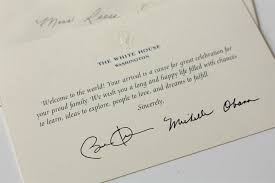 Miss
THE WHITE HOUSE
WASHINGTON
Welcome to the world! Your arrival is a cause for great celebration for
your proud family. We wish you a long and happy life filled with chances
to learn, ideas to explore, people to love, and dreams to fulfill.
Sincerely,
Michelle Obama